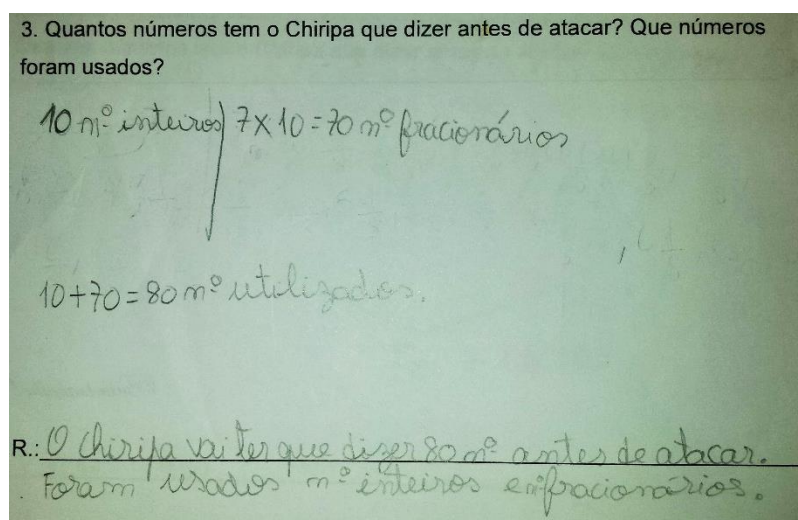 3. Quantos números tem o Chiripa que dizer antes de atacar? Que números
foram usados?
10 nº inteiros 7 X 10 = 70 nº fracionários
10 + 70 = 80 nº utilizados.
R.: O Chiripa vai ter que dizer 80 nº antes de atacar.
Foram usados nº inteiros e nº fracionários.